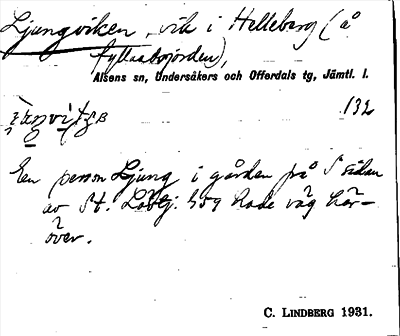 Ljungviken, vik i Helleberg (å
fyllaabojorden),
Alsens sn, Undersåkers och Offerdals tg, Jämtl. l.
132
En person Ljung i gården på S sidan
av St. 459 hade väg här-
över.
C. LINDBERG 1931.